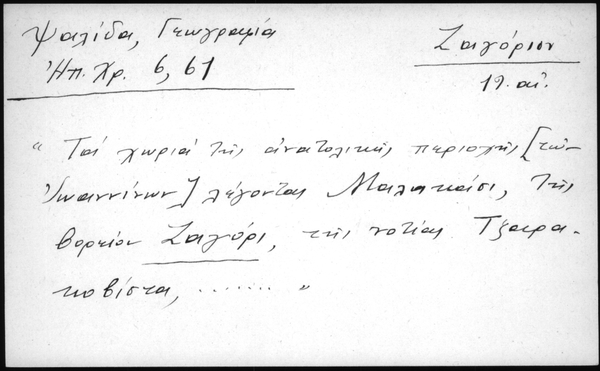 Ψαλίδα, Γεωγραφία
Ζαγόριον
Ἠπ. Χρ. 6, 61
19. αἰ.
“ Τά χωριά τῆς ἀνατολικῆς περιοχῆς [τῶν
Ἰωαννίνων] λέγονται Μαλακάσι, τῆς
βορείου Ζαγόρι, τῆς νοτίας Τζερα-
κοβίστα, ........ „